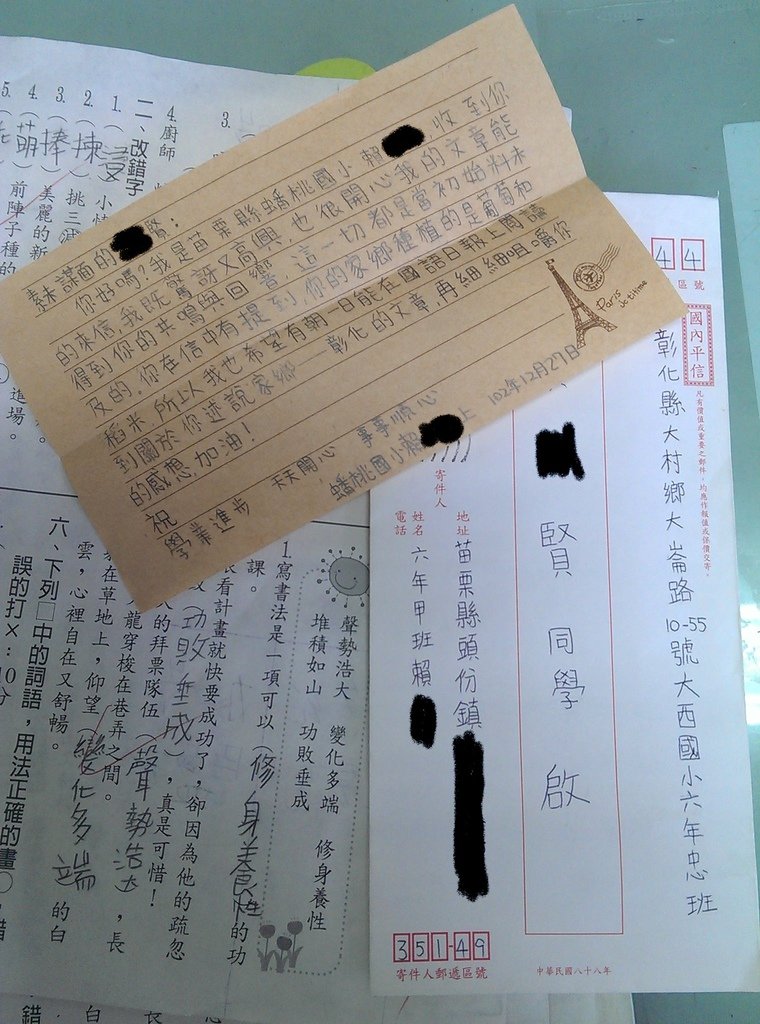 素謀面的賢:
你好嗎?我是苗栗縣蟠桃國小賴 收到你
的來信,我既驚訝又高興,也很開心我的文章能
得到你的共鳴與回響,這一切都是當初始料未
及的,你在信中有提到,你的家鄉種植的是葡萄和
稻米,所以我也希望有朝一日能在國語日報上閱讀
到關於你述說家鄉 彰化的文章,再細細咀嚼你
的感想加油!
祝
學業進步 天天開心 事事順心
蟠桃國小賴 上 102年12月27日
Paris
Je t'aime
44
區號
國內平信
凡有價值或重要之郵件,均應作報值或保價交寄。
彰化縣大村鄉大崙路10-55號大西國小六年忠班
賢 同學 啟
寄件人
地址
苗栗縣頭份鎮
姓名
電話
六年甲班賴
351-49
寄件人郵遞區號
中華民國八十八年
3.
4. 廚師
二、改錯字
1. (
2. (揀 挑三
3. (棒 美麗的新
4. (萌 前陣子種的
5.
進場。
聲勢浩大 變化多端 修身養性
堆積如山 功敗垂成
1. 寫書法是一項可以(修身養性)的功
課。
看計畫就快要成功了,卻因為他的疏忽
(功敗垂成),真是可惜!
的拜票隊伍(聲勢浩大),長
龍穿梭在巷弄之間。
在草地上,仰望(變化多端)的白
雲,心裡自在又舒暢。
六、下列□中的詞語,用法正確的畫○,錯
誤的打×:10分